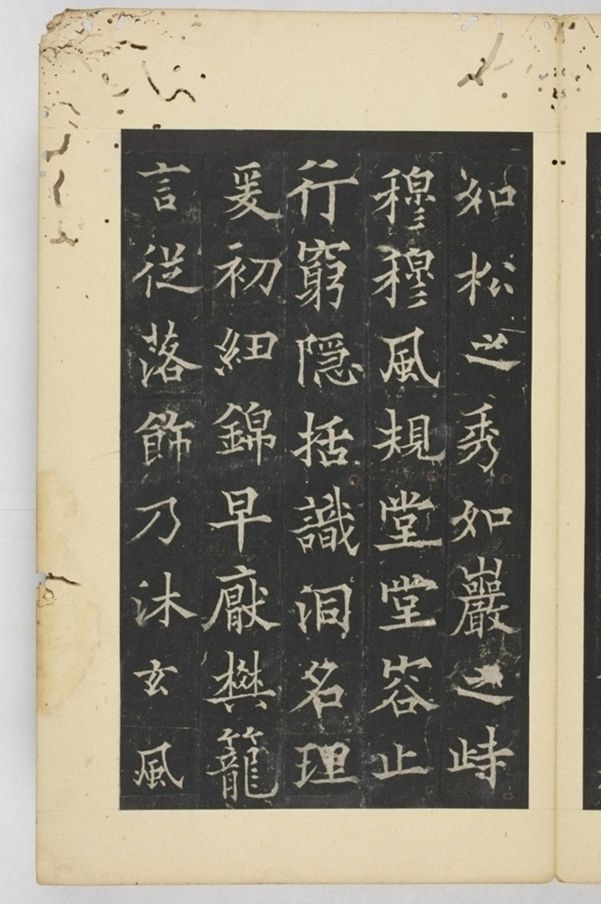 如松之秀如巖之峙
穆穆風規堂堂容止
行窮隱括識洞名理
爰初細錦早厭樊籠
言從落飾乃沐玄風